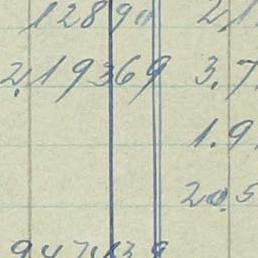 12890 2,1
2,19369 3,7
1.9
20.5
947139